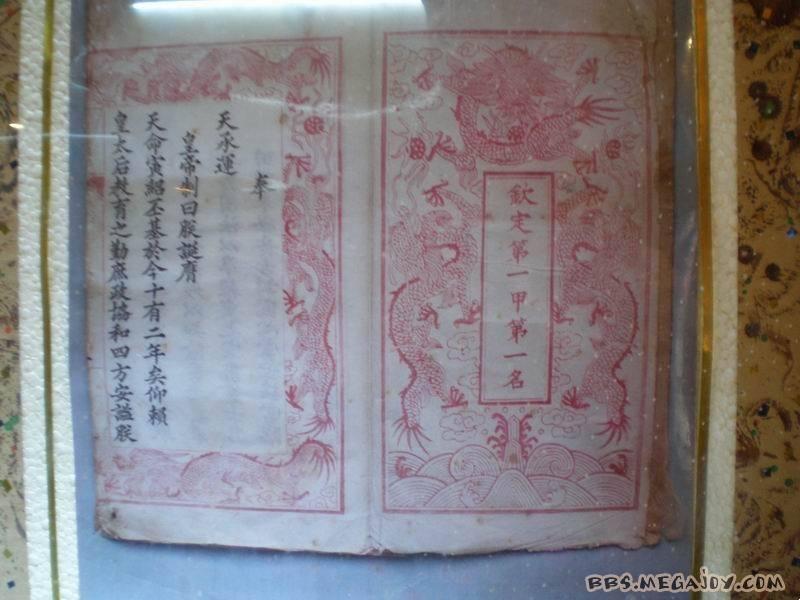 欽定第一甲第一名
奉
天承運
皇帝制曰朕誕膺
天命寅紹丕基於今十有二年矣仰賴
皇太后教育之勤庶政協和四方安謐朕
BBS.MEGAJOY.COM